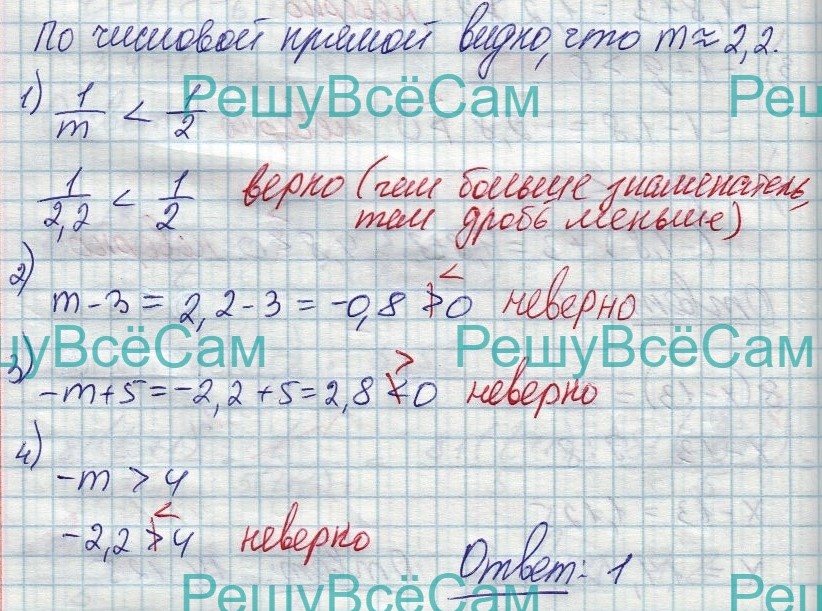 По числовой прямой видно, что m ≈ 2,2.
РешуВсёСам Решу
1) 1/m < 1/2
1/2,2 < 1/2 верно (чем больше знаменатель,
тем дробь меньше)
2)
<
m - 3 = 2,2 - 3 = -0,8 > 0 неверно
уВсёСам РешуВсёСам
3)
>
-m + 5 = -2,2 + 5 = 2,8 < 0 неверно
4)
-m > 4
<
-2,2 > 4 неверно
Ответ: 1
РешуВсёСам Решу